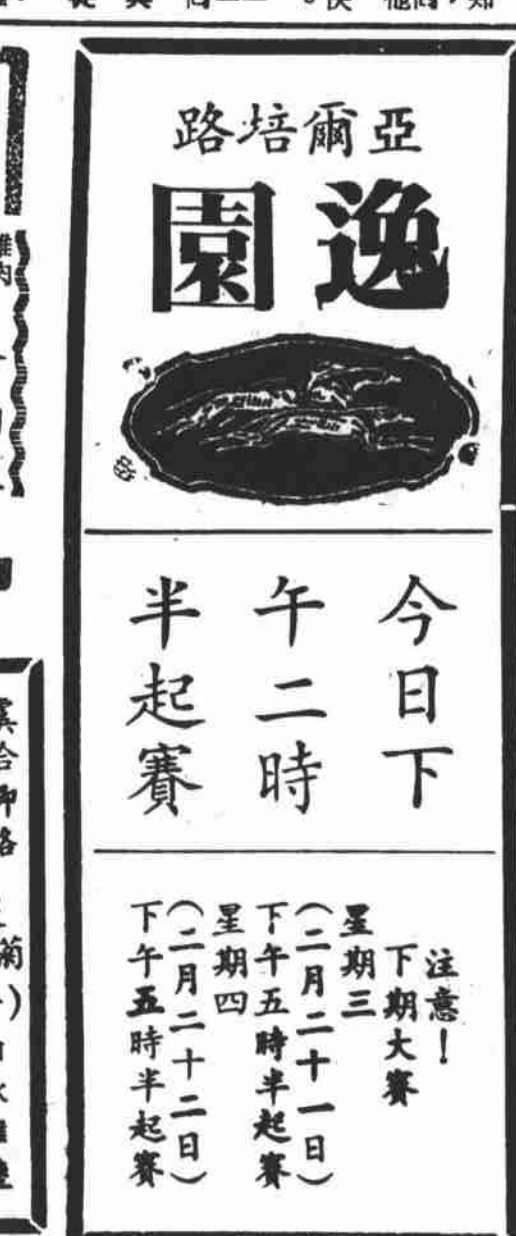 亞爾培路
逸園
今日下
午二時
半起賽
注意！
下期大賽
星期三
（二月二十一日）
下午五時半起賽
星期四
（二月二十二日）
下午五時半起賽